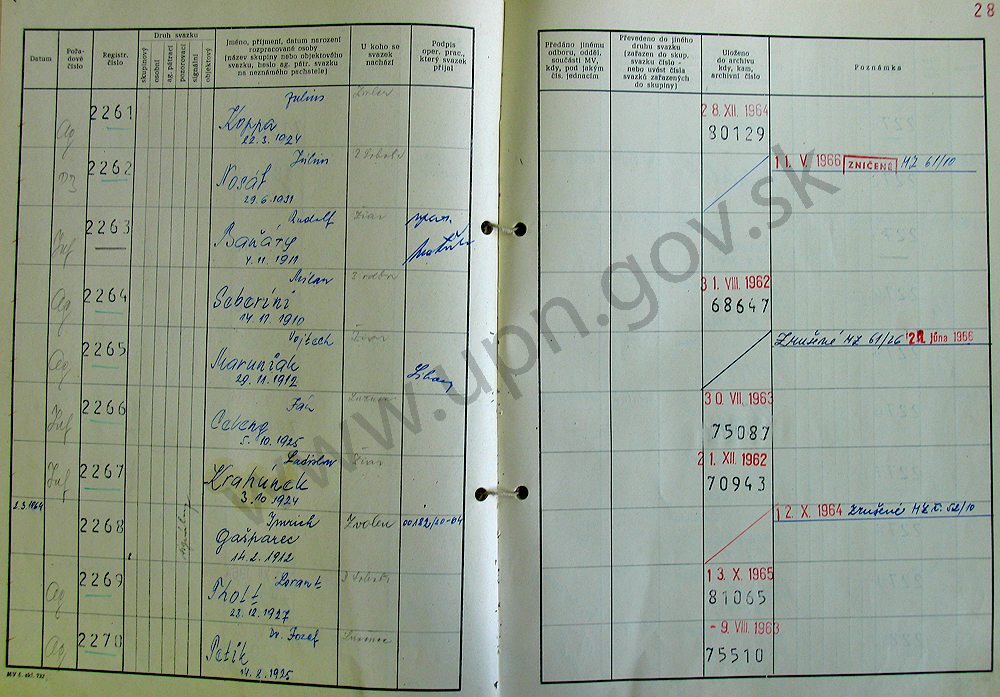 28
Druh svazku
Datum
Pořadové číslo
Registr. číslo
skupinový
osobní
ag. pátrací
pozorovací
signální
objektový
Jméno, příjmení, datum narození rozpracované osoby (název skupiny nebo objektového svazku, heslo ag. pátr. svazku na neznámého pachatele)
U koho se svazek nachází
Podpis oper. prac., který svazek přijal
Předáno jinému odboru, odděl. součásti MV, kdy, pod jakým čís. jednacím
Převedeno do jiného druhu svazku (zařazen do skup. svazku číslo - nebo uvést čísla svazků zařazených do skupiny)
Uloženo do archivu kdy, kam, archivní číslo
Poznámka
Ag 2261 Július
Koppa
22.3.1924
28. XII. 1964
80129
2262 Július
Nosáľ
29.6.1931
11. V. 1966 ZNIČENÉ MZ 61/10
Inf 2263 Rudolf Žiar
Baňáry
4.11.1911
Ag 2264 Milan
Seberíni
14.11.1910
31. VIII. 1962
68647
Ag 2265 Vojtech
Maruniak
29.11.1912
Zrušené MZ 61/26 júna 1966
Inf 2266 Ján
5.10.1925
30. VII. 1963
75087
Inf 2267 Ladislav
Krahúnek
3.10.1924
21. XII. 1962
70943
2.3.1964
2268 Imrich Zvolen 00182/20-04
Gašparec
14.2.1912
12. X. 1964 Zrušené MZ č. 52/10
Ag 2269 Lorant
Tholt
28.12.1927
13. X. 1965
81065
Ag 2270 Dr. Jozef
Petik
14.2.1925
- 9. VIII. 1963
75510
www.upn.gov.sk